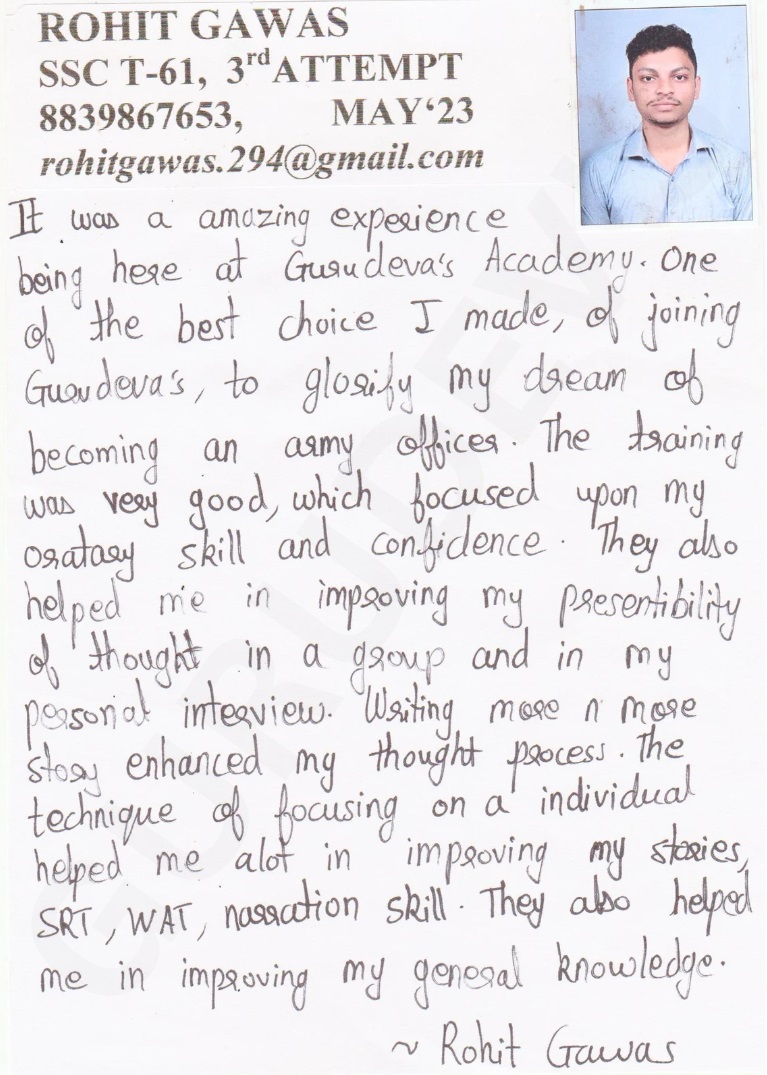 ROHIT GAWAS
SSC T-61, 3rd ATTEMPT
8839867653, MAY‘23
rohitgawas.294@gmail.com
It was a amazing experience
being here at Gurudeva's Academy. One
of the best choice I made, of joining
Gurudeva's, to glorify my dream of
becoming an army officer. The training
was very good, which focused upon my
oratary skill and confidence. They also
helped me in improving my presentibility
of thought in a group and in my
personal interview. Writing more n more
story enhanced my thought process. The
technique of focusing on a individual
helped me alot in improving my stories,
SRT, WAT, narration skill. They also helped
me in improving my general knowledge.
~ Rohit Gawas